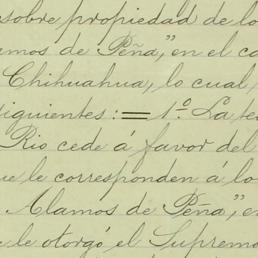 sobre propiedad de lo
amos de Peña", en el ca
Chihuahua, lo cual,
siguientes: = 1º. La te
Rio cede á favor del
ue le corresponden á lo
Alamos de Peña", e
e le otorgó el Supremo